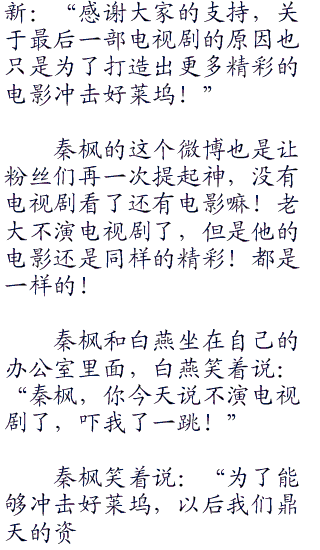 新：“感谢大家的支持，关
于最后一部电视剧的原因也
只是为了打造出更多精彩的
电影冲击好莱坞！”
秦枫的这个微博也是让
粉丝们再一次提起神，没有
电视剧看了还有电影嘛！老
大不演电视剧了，但是他的
电影还是同样的精彩！都是
一样的！
秦枫和白燕坐在自己的
办公室里面，白燕笑着说：
“秦枫，你今天说不演电视
剧了，吓我了一跳！”
秦枫笑着说：“为了能
够冲击好莱坞，以后我们鼎
天的资